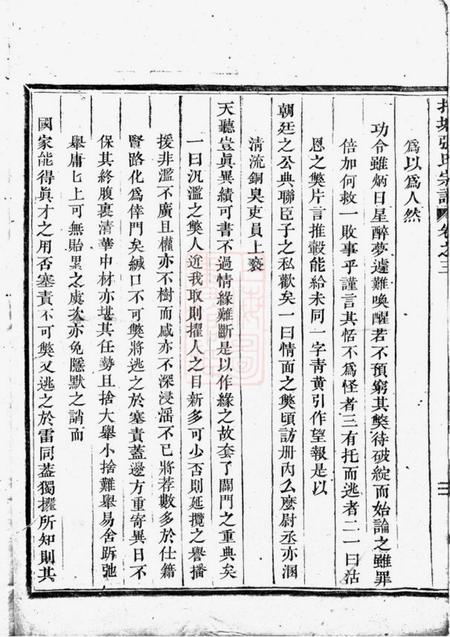 張氏宗譜 卷之三
為以為人然
功令雖炳日星醉夢遽難喚醒若不預窮其獘待破綻而始論之雖罪
倍加何救一敗事乎謹言其恬不為怪者三有托而逃者二一曰沽
恩之獘片言推轂能給未同一字靑黃引作望報是以
朝廷之公典聯臣子之私歡矣一曰情面之獘頃訪册內么麽尉丞亦溷
清流銅臭吏員上褻
天聽豈眞異績可書不過情緣難斷是以作緣之故套了關門之重典矣
一曰汎濫之獘人近我取則擢人之日新多可少否則延攬之譽播
援非濫不廣且權亦不樹而咸亦不深浸滛不已將荐數多於仕籍
賢路化為倖門矣緘口不可獘將逃之於塞責蓋邊方重寄異日不
保其終腹裏清華中材亦堪其任勢且捨大舉小捨難舉易舍跅弛
舉庸匕上可無貽累之虞次亦免隱默之誚而
國家能得眞才之用否塞責不可獘又逃之於雷同蓋獨擢所知則其
三